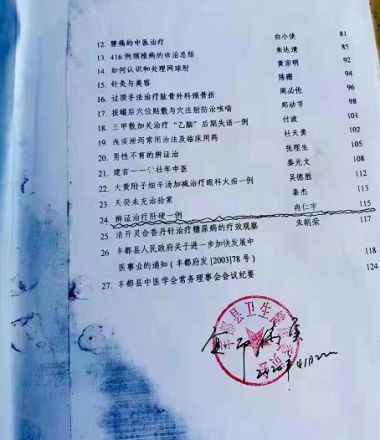 12. 腰痛的中医治疗 白小侠 81
13. 416例颈椎病的诊治总结 朱达清 85
14. 如何认识和处理网球肘 黄宗明 92
15. 针灸与美容 陈珊 94
16. 过顶手法治疗肱骨外科颈骨折 周必伦 96
17. 拔罐后穴位贴敷与穴注射防治咳喘 郑动节 98
18. 三甲散加关治疗“乙脑”后期失语一例 付波 101
19. 浅谈泄泻常用治法及临床用药 杜天勇
20. 男性不育的辨证治 张理生
21. 建言——壮年中医 秦光文 108
22. 大黄附子细辛汤加减治疗眼科火疳一例 吴德胜 112
23. 天癸未充治验案 秦杰 113
24. 辨证治疗肝硬一例 冉仁宇 115
25. 清开灵合香丹针治疗糖尿病的疗效观察 朱朝荣 117
26. 丰都县人民政府关于进一步加快发展中
医事业的通知(丰都府发[2003]78号) 118
27. 丰都县中医学会常务理事会会议纪要 124
县卫生